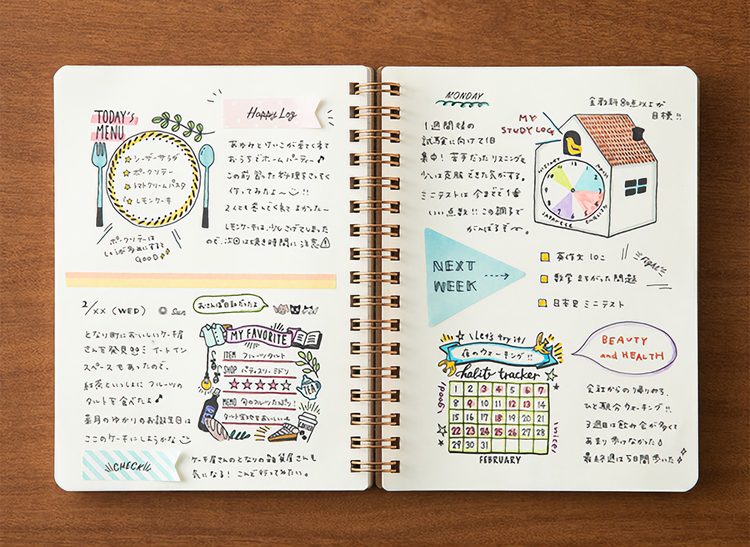 TODAY's
MENU
シーザーサラダ
ポークソテー
トマトクリームパスタ
レモンケーキ
ポークソテーは
しょうが多めにすると
GOOD
Happy Log
あゆみとけいこが遊びに来て
おうちでホームパーティー♪
この前習った料理をさっそく
作ってみたよ〜!!
2人とも喜んでくれてよかった〜
レモンケーキは、少しこげてしまった
ので、次回は焼き時間に注意
2/XX (WED)
Sun
おさんぽ日記だったよ
となり町においしいケーキ屋
さんを発見!!イートイン
スペースもあったので、
紅茶といっしょに フルーツの
タルトを食べたよ♪
来月のゆかりのお誕生日は
ここのケーキにしようかな
MY FAVORITE
ITEM フルーツタルト
SHOP パティスリー ミドリ
MEMO 旬のフルーツたっぷり!
タルト生地もおいしい
TEA
CHECK!!
ケーキ屋さんのとなりの雑貨屋さんも
気になる! こんど行ってみたい。
MONDAY
1週間後の
試験に向けて1日
集中! 苦手だったリスニングも
少し克服できた気がする。
ミニテストは今までで1番
いい点数!! この調子で
がんばるぞ〜
全教科80点以上が
目標!!
MY
STUDY LOG
HISTORY
MATH
JAPANESE
ENGLISH
NEXT
WEEK
英作文 10こ
数学 まちがった問題
日本史 ミニテスト
Fight!
Let's try it!
夜のウォーキング!!
habit tracker
good!
nice!
1 2 3 4 5 6 7
8 9 10 11 12 13 14
15 16 17 18 19 20 21
22 23 24 25 26 27 28
29 30 31
FEBRUARY
BEAUTY
and HEALTH
会社からの帰り道、
ひと駅分ウォーキング!!
3週目は飲み会が多くて
あまり歩けなかった
最終週は5日間歩いた